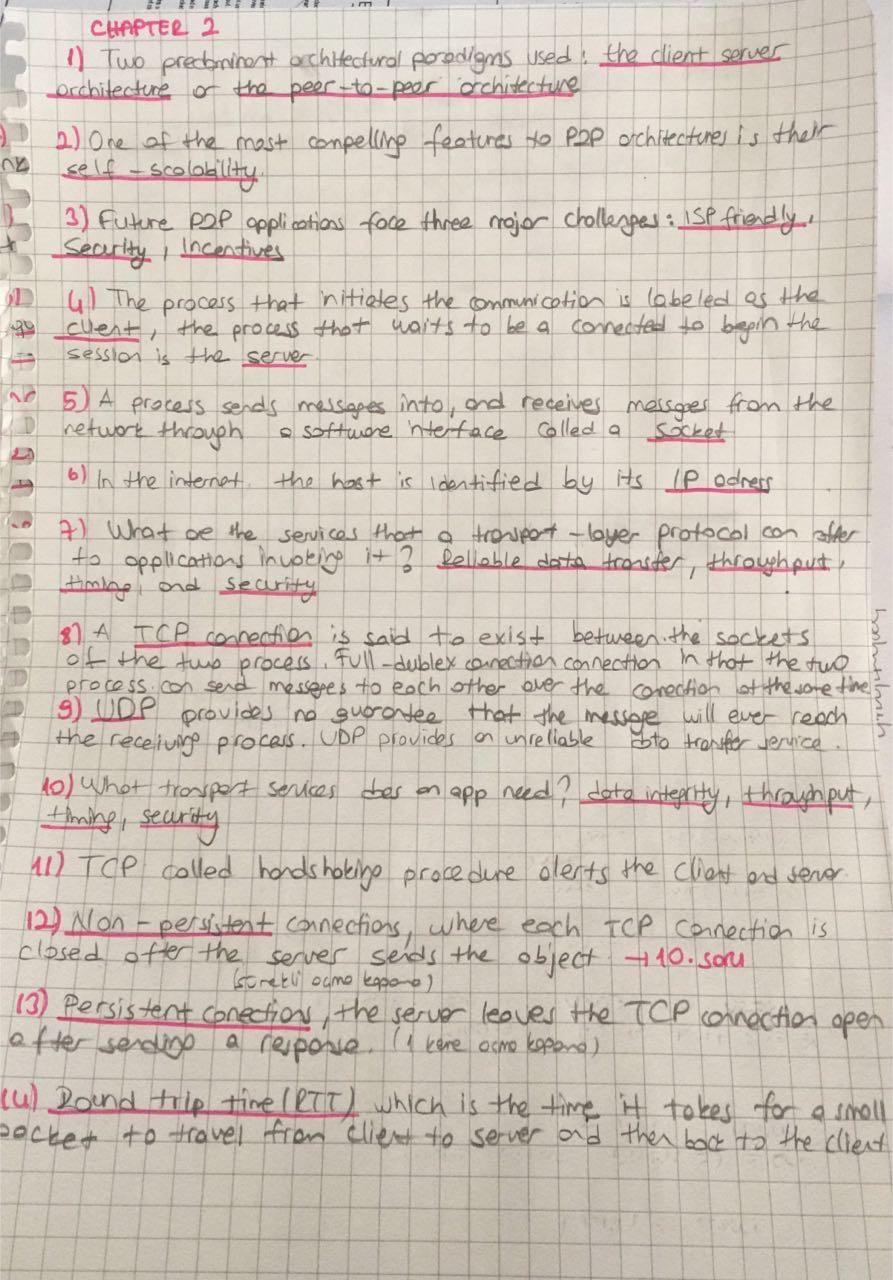 CHAPTER 2
1) Two predominant architectural paradigms used: the client server
architecture or the peer-to-pear architecture
2) One of the most conpelling features to P2P architectures is their
self-scalability.
3) Future P2P applications face three major challenges: ISP friendly,
Security, Incentives
4) The process that initiates the communication is labeled as the
client, the process that waits to be a connected to begin the
session is the server.
5) A process sends messages into, and receives messges from the
network through a software interface called a socket
6) In the internet. the host is identified by its IP adress
7) What are the services that a transport-layer protocol can offer
to applications invoking it? Reliable data transfer, throughput,
timing, and security
8) A TCP connection is said to exist between the sockets
of the two process. full-dublex conection connection in that the two
process can send messeges to each other over the conection at the same time
9) UDP provides no guarantee that the message will ever reach
the receiving process. UDP provides an unreliable data transfer service.
10) What transport services does an app need? data integrity, throughput,
timing, security
11) TCP called handshaking procedure alerts the client and server
12) Non-persistent connections, where each TCP connection is
closed after the server sends the object → 10. soru
(sürekli açma kapama)
13) Persistent conections, the server leaves the TCP connection open
after sending a response. (1 kere açma kapama)
14) Round trip time (RTT) which is the time it takes for a small
packet to travel from client to server and then back to the client